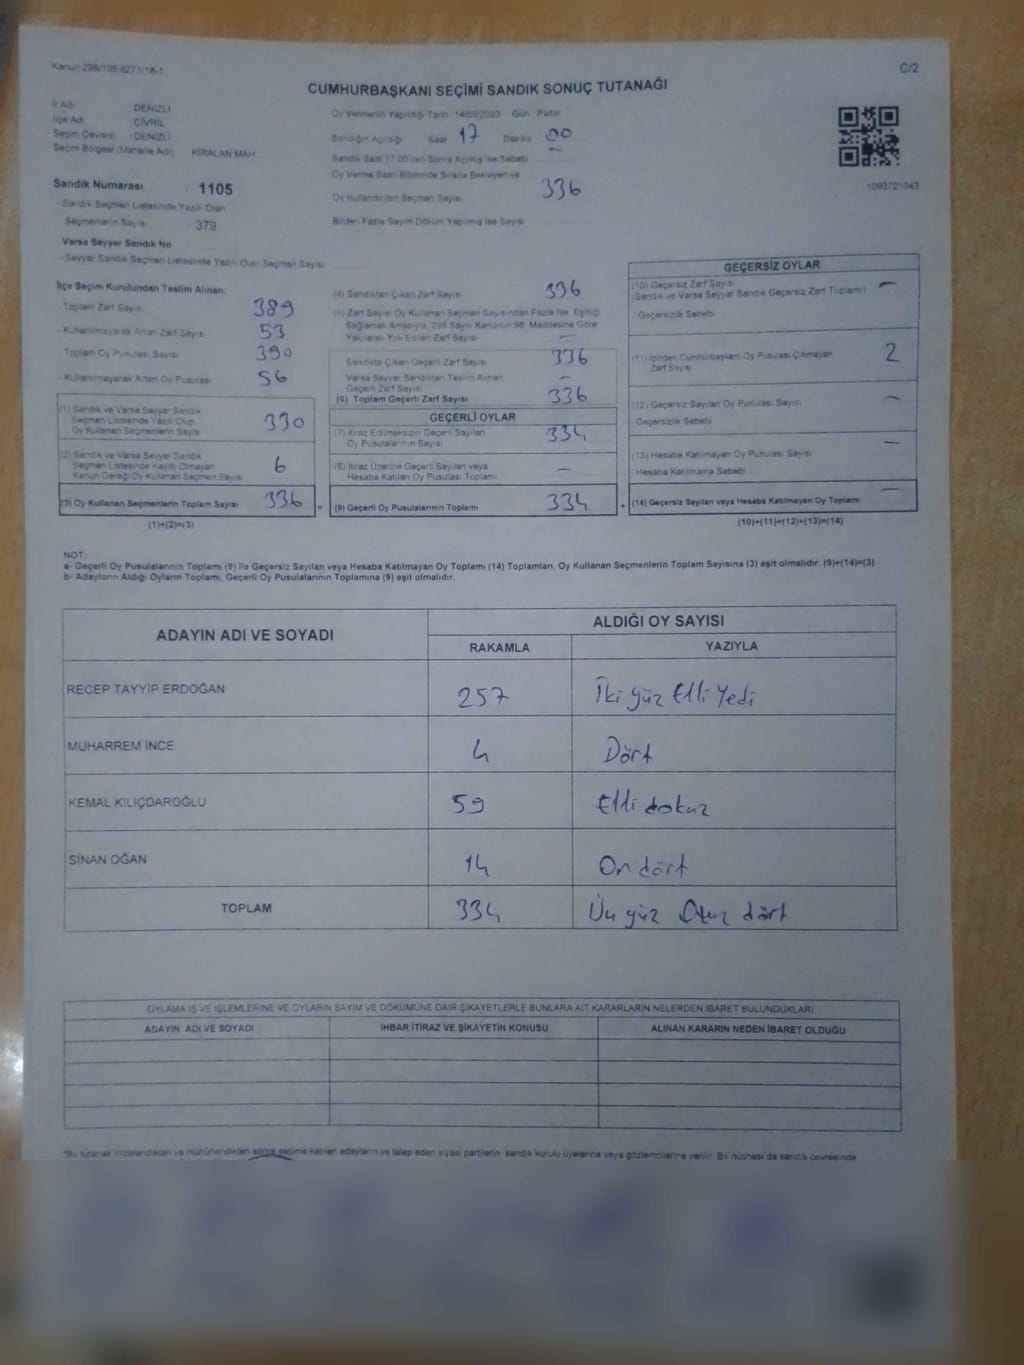 Kanun:298/105:6271/18-1
C/2
CUMHURBAŞKANI SEÇİMİ SANDIK SONUÇ TUTANAĞI
İl Adı DENİZLİ
İlçe Adı ÇİVRİL
Seçim Çevresi : DENİZLİ
Seçim Bölgesi (Mahalle Adı) KIRALAN MAH
Sandık Numarası : 1105
- Sandık Seçmen Listesinde Yazılı Olan
Seçmenlerin Sayısı 379
Varsa Seyyar Sandık No
- Seyyar Sandık Seçmen Listesinde Yazılı Olan Seçmen Sayısı
Oy Vermenin Yapıldığı Tarih 14/05/2023 Gün Pazar
Sandığın Açıldığı Saat 17 Dakika 00
Sandık Saat 17.00'den Sonra Açılmış İse Sebebi
Oy Verme Saati Bitiminde Sırada Bekleyen ve
Oy Kullandırılan Seçmen Sayısı 336
Birden Fazla Sayım Döküm Yapılmış İse Sayısı
1093721343
İlçe Seçim Kurulundan Teslim Alınan;
Toplam Zarf Sayısı 389
- Kullanılmayarak Artan Zarf Sayısı 53
- Toplam Oy Pusulası Sayısı 390
- Kullanılmayarak Artan Oy Pusulası 56
(1) Sandık ve Varsa Seyyar Sandık
Seçmen Listesinde Yazılı Olup
Oy Kullanan Seçmenlerin Sayısı 330
(2) Sandık ve Varsa Seyyar Sandık
Seçmen Listesinde Kayıtlı Olmayan
Kanun Gereği Oy Kullanan Seçmen Sayısı 6
(3) Oy Kullanan Seçmenlerin Toplam Sayısı 336
(1)+(2)=(3)
(4) Sandıktan Çıkan Zarf Sayısı 336
(5) Zarf Sayısı Oy Kullanan Seçmen Sayısından Fazla İse, Eşitliği
Sağlamak Amacıyla, 298 Sayılı Kanunun 98. Maddesine Göre
Yakılarak Yok Edilen Zarf Sayısı -
Sandıkta Çıkan Geçerli Zarf Sayısı 336
Varsa Seyyar Sandıktan Teslim Alınan
Geçerli Zarf Sayısı -
(6) Toplam Geçerli Zarf Sayısı 336
GEÇERLİ OYLAR
(7) İtiraz Edilmeksizin Geçerli Sayılan
Oy Pusulalarının Sayısı 334
(8) İtiraz Üzerine Geçerli Sayılan veya
Hesaba Katılan Oy Pusulası Toplamı -
= (9) Geçerli Oy Pusulalarının Toplamı 334
GEÇERSİZ OYLAR
(10) Geçersiz Zarf Sayısı -
(Sandık ve Varsa Seyyar Sandık Geçersiz Zarf Toplamı)
- Geçersizlik Sebebi
(11) İçinden Cumhurbaşkanı Oy Pusulası Çıkmayan 2
Zarf Sayısı
(12) Geçersiz Sayılan Oy Pusulası Sayısı -
- Geçersizlik Sebebi
(13) Hesaba Katılmayan Oy Pusulası Sayısı -
- Hesaba Katılmama Sebebi
+ (14) Geçersiz Sayılan veya Hesaba Katılmayan Oy Toplamı -
(10)+(11)+(12)+(13)=(14)
NOT:
a- Geçerli Oy Pusulalarının Toplamı (9) İle Geçersiz Sayılan veya Hesaba Katılmayan Oy Toplamı (14) Toplamları, Oy Kullanan Seçmenlerin Toplam Sayısına (3) eşit olmalıdır. (9)+(14)=(3)
b- Adayların Aldığı Oyların Toplamı, Geçerli Oy Pusulalarının Toplamına (9) eşit olmalıdır.
ADAYIN ADI VE SOYADI ALDIĞI OY SAYISI
RAKAMLA YAZIYLA
RECEP TAYYİP ERDOĞAN 257 İki yüz Elli Yedi
MUHARREM İNCE 4 Dört
KEMAL KILIÇDAROĞLU 59 Elli dokuz
SİNAN OĞAN 14 On dört
TOPLAM 334 Üç yüz Otuz dört
OYLAMA İŞ VE İŞLEMLERİNE VE OYLARIN SAYIM VE DÖKÜMÜNE DAİR ŞİKAYETLERLE BUNLARA AİT KARARLARIN NELERDEN İBARET BULUNDUKLARI
ADAYIN ADI VE SOYADI İHBAR İTİRAZ VE ŞİKAYETİN KONUSU ALINAN KARARIN NEDEN İBARET OLDUĞU
*Bu tutanak imzalandıktan ve mühürlendikten sonra seçime katılan adayların ve talep eden siyasi partilerin sandık kurulu üyelerine veya gözlemcilerine verilir. Bir nüshası da sandık çevresinde